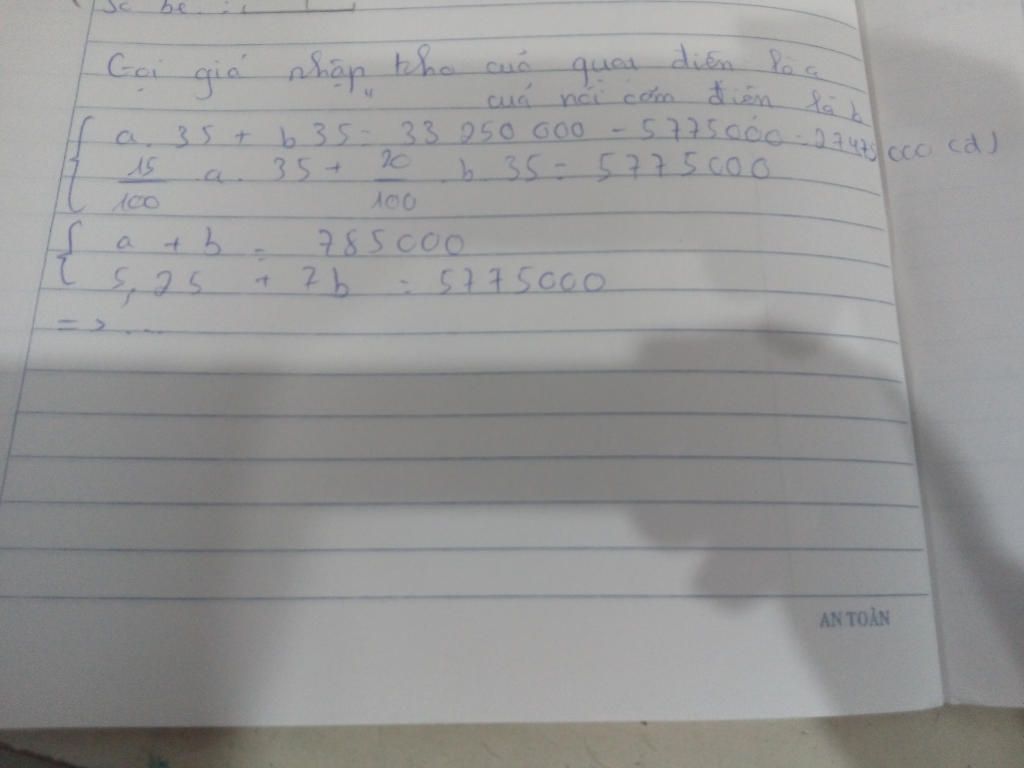 Sc be :
Gọi giá nhập kho cuả quạt điện là a
cuả nồi cơm điện là b
a. 35 + b 35 = 33 250 000 - 5775000 = 27475 000 (đ)
15/100 . a. 35 + 20/100 . b. 35 = 5775000
a + b = 785000
5,25 + 7b = 5775000
=> ...
AN TOÀN